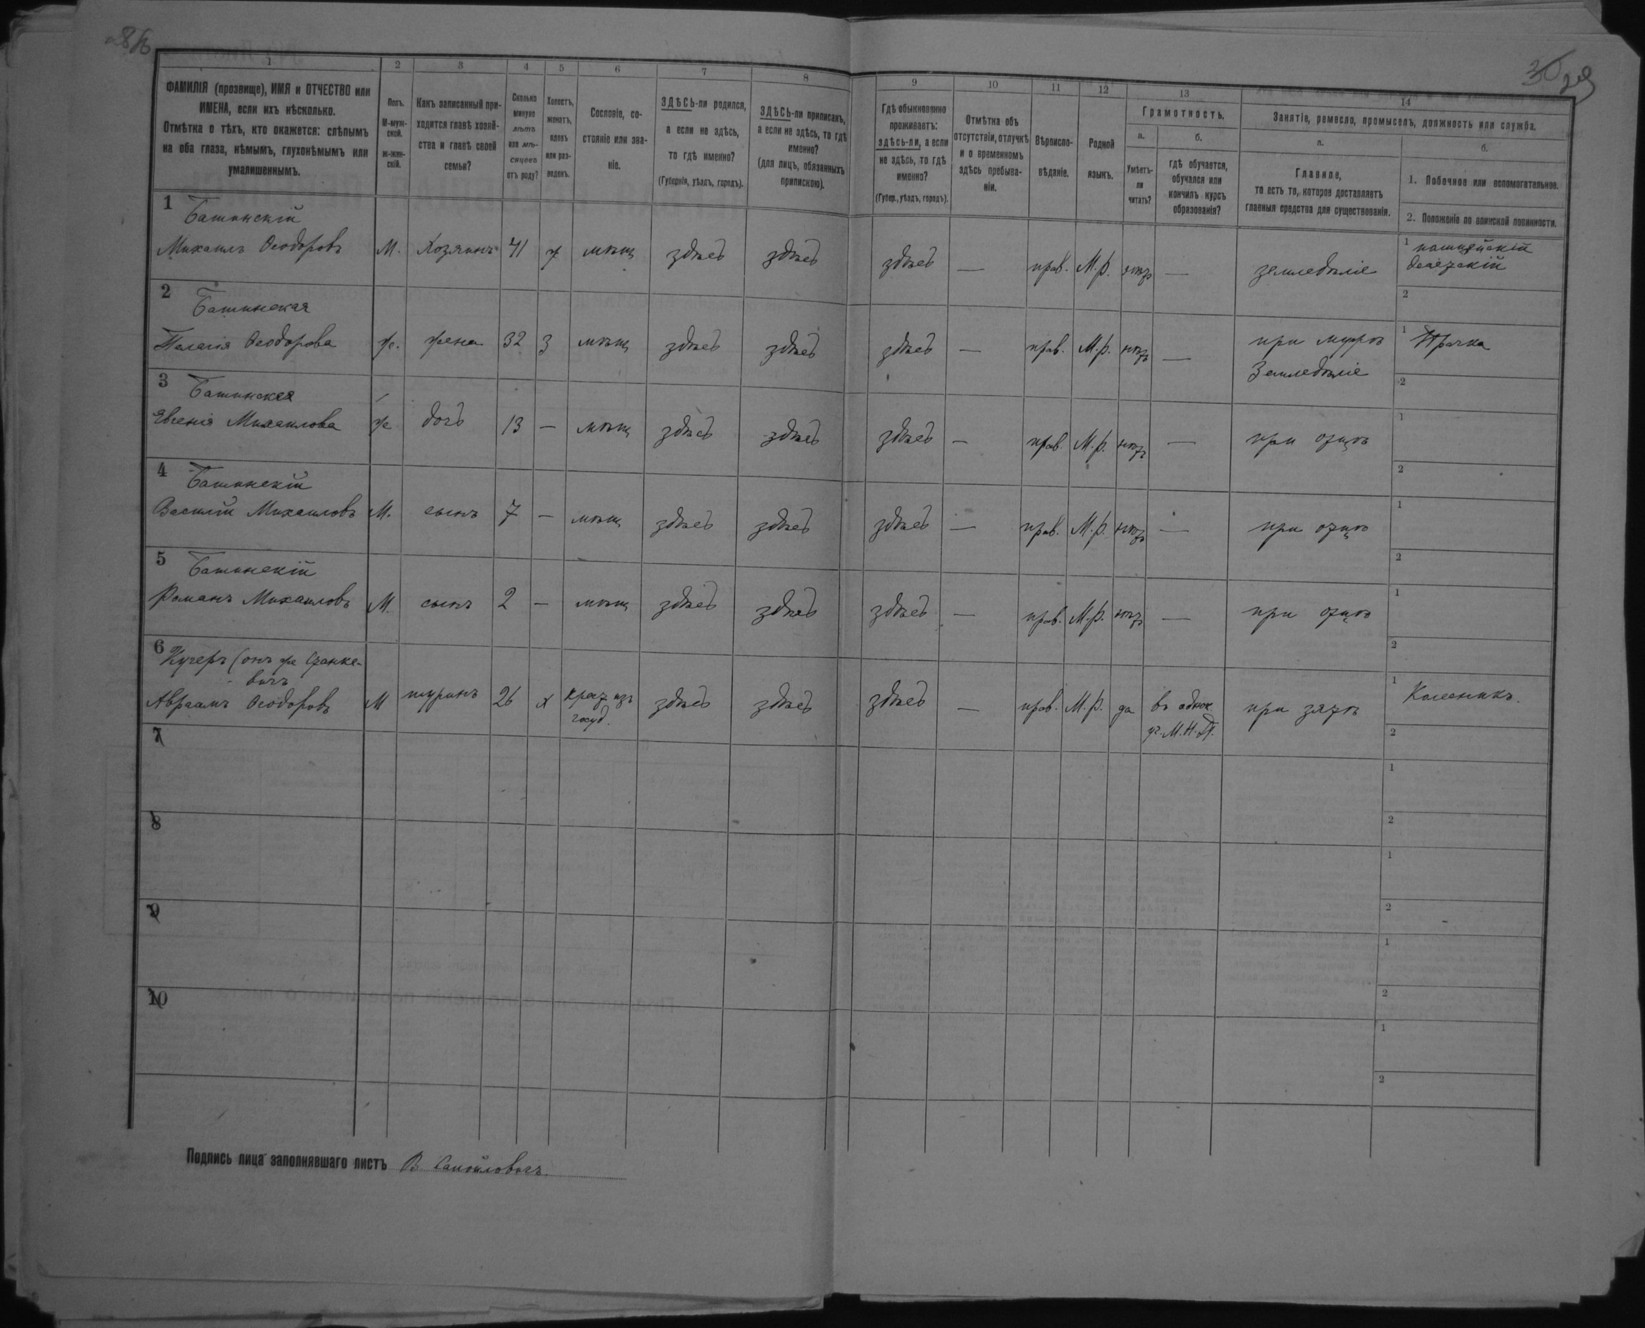 1
2
3
4
5
6
7
8
9
10
11
12
13
14
ФАМИЛІЯ (прозвище), ИМЯ и ОТЧЕСТВО или
ИМЕНА, если ихъ нѣсколько.
Отмѣтка о тѣхъ, кто окажется: слѣпымъ
на оба глаза, нѣмымъ, глухонѣмымъ или
умалишеннымъ.
Полъ.
М-муж-
ской.
ж-жен-
скій.
Какъ записанный при-
ходится главѣ хозяй-
ства и главѣ своей
семьи?
Сколько
минуло
лѣтъ
или мѣ-
сяцевъ
отъ роду?
Холостъ,
женатъ,
вдовъ
или раз-
веденъ.
Сословіе, со-
стояніе или зва-
ніе.
ЗДѢСЬ-ли родился,
а если не здѣсь,
то гдѣ именно?
(Губернія, уѣздъ, городъ).
ЗДѢСЬ-ли приписанъ,
а если не здѣсь, то гдѣ
именно?
(для лицъ, обязанныхъ
припискою).
Гдѣ обыкновенно
проживаетъ:
здѣсь-ли, а если
не здѣсь, то гдѣ
именно?
(Губер., уѣздъ, городъ).
Отмѣтка объ
отсутствіи, отлучкѣ
и о временномъ
здѣсь пребыва-
ніи.
Вѣроиспо-
вѣданіе.
Родной
языкъ.
Грамотность.
а.
Умѣетъ-
ли
читать?
б.
гдѣ обучается,
обучался или
кончилъ курсъ
образованія?
Занятіе, ремесло, промыселъ, должность или служба.
а.
Главное,
то есть то, которое доставляетъ
главныя средства для существованія.
б.
1. Побочное или вспомогательное.
2. Положеніе по воинской повинности.
1 Башинскій
Михаилъ Ѳеодоровъ М. Хозяинъ 41 ж мѣщ здѣсь здѣсь здѣсь — прав. М.Р. нѣтъ — земледѣліе
1 полицейскій
десятскій
2
2 Башинская
Пелагія Ѳеодорова ж. жена 32 з мѣщ здѣсь здѣсь здѣсь — прав. М.Р. нѣтъ — при мужѣ
Земледѣліе
1 Прачка
2
3 Башинская
Евгенія Михаилова ж дочь 13 — мѣщ здѣсь здѣсь здѣсь — прав. М.Р. нѣтъ — при отцѣ
1
2
4 Башинскій
Василій Михаиловъ М. сынъ 7 — мѣщ здѣсь здѣсь здѣсь — прав. М.Р. нѣтъ — при отцѣ
1
2
5 Башинскій
Романъ Михаиловъ М. сынъ 2 — мѣщ здѣсь здѣсь здѣсь — прав. М.Р. нѣтъ — при отцѣ
1
2
6 Кучеръ (онъ же Франке-
вичъ
Авраамъ Ѳеодоровъ М шуринъ 26 х крест изъ
госуд. здѣсь здѣсь здѣсь — прав. М.Р. да въ однок
уч. М.Н.П. при зятѣ
1 Колесникъ.
2
7
1
2
8
1
2
9
1
2
10
1
2
Подпись лица заполнявшаго листъ В. Самойловичъ